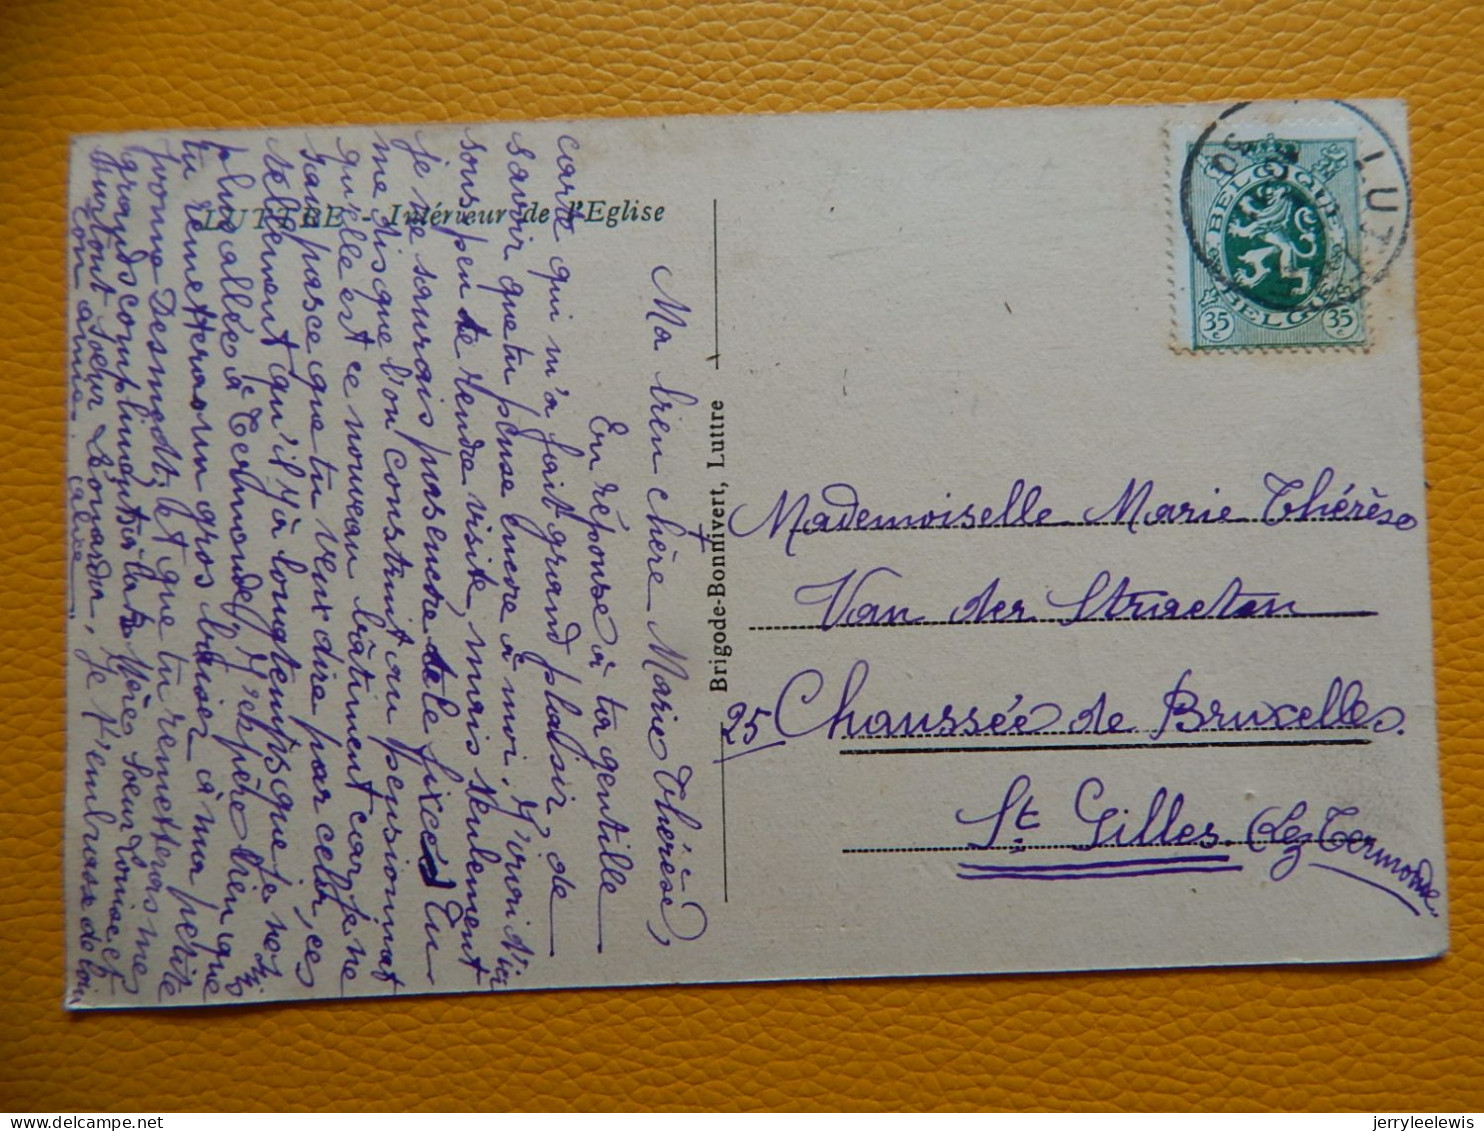 LUTTRE - Intérieur de l'Eglise
Ma bien chère Marie Thérèse,
En réponse à ta gentille
carte qui m'a fait grand plaisir, de
savoir que tu pense encore à moi. J'irai d'ici
sous peu te rendre visite, mais seulement
je ne saurais pas encore te le fixée. Tu
me dis que l'on construit au pensionnat
qu'elle est ce nouveau bâtiment car je ne
sais pas ce que tu veux dire par cela, ces
tellement qu'il y à lougtemps que je ne suis
plus allée à Termonde. J'éspère bien que
tu remetteras un gros baiser à ma petite
Yvonne Desmedt, et que tu remetteras mes
grands compliments à la Mère, Soeur Louise et
surtout Soeur Léonarda, je t'embrasse de loin
ton amie.
Brigode-Bonnivert, Luttre
BELGIQUE
BELGIË
35 c 35 c
LUTT
30
Mademoiselle Marie Thérèse
Van der Straeten
25 Chaussée de Bruxelles.
St Gilles. lez Termonde
jerryleelewis